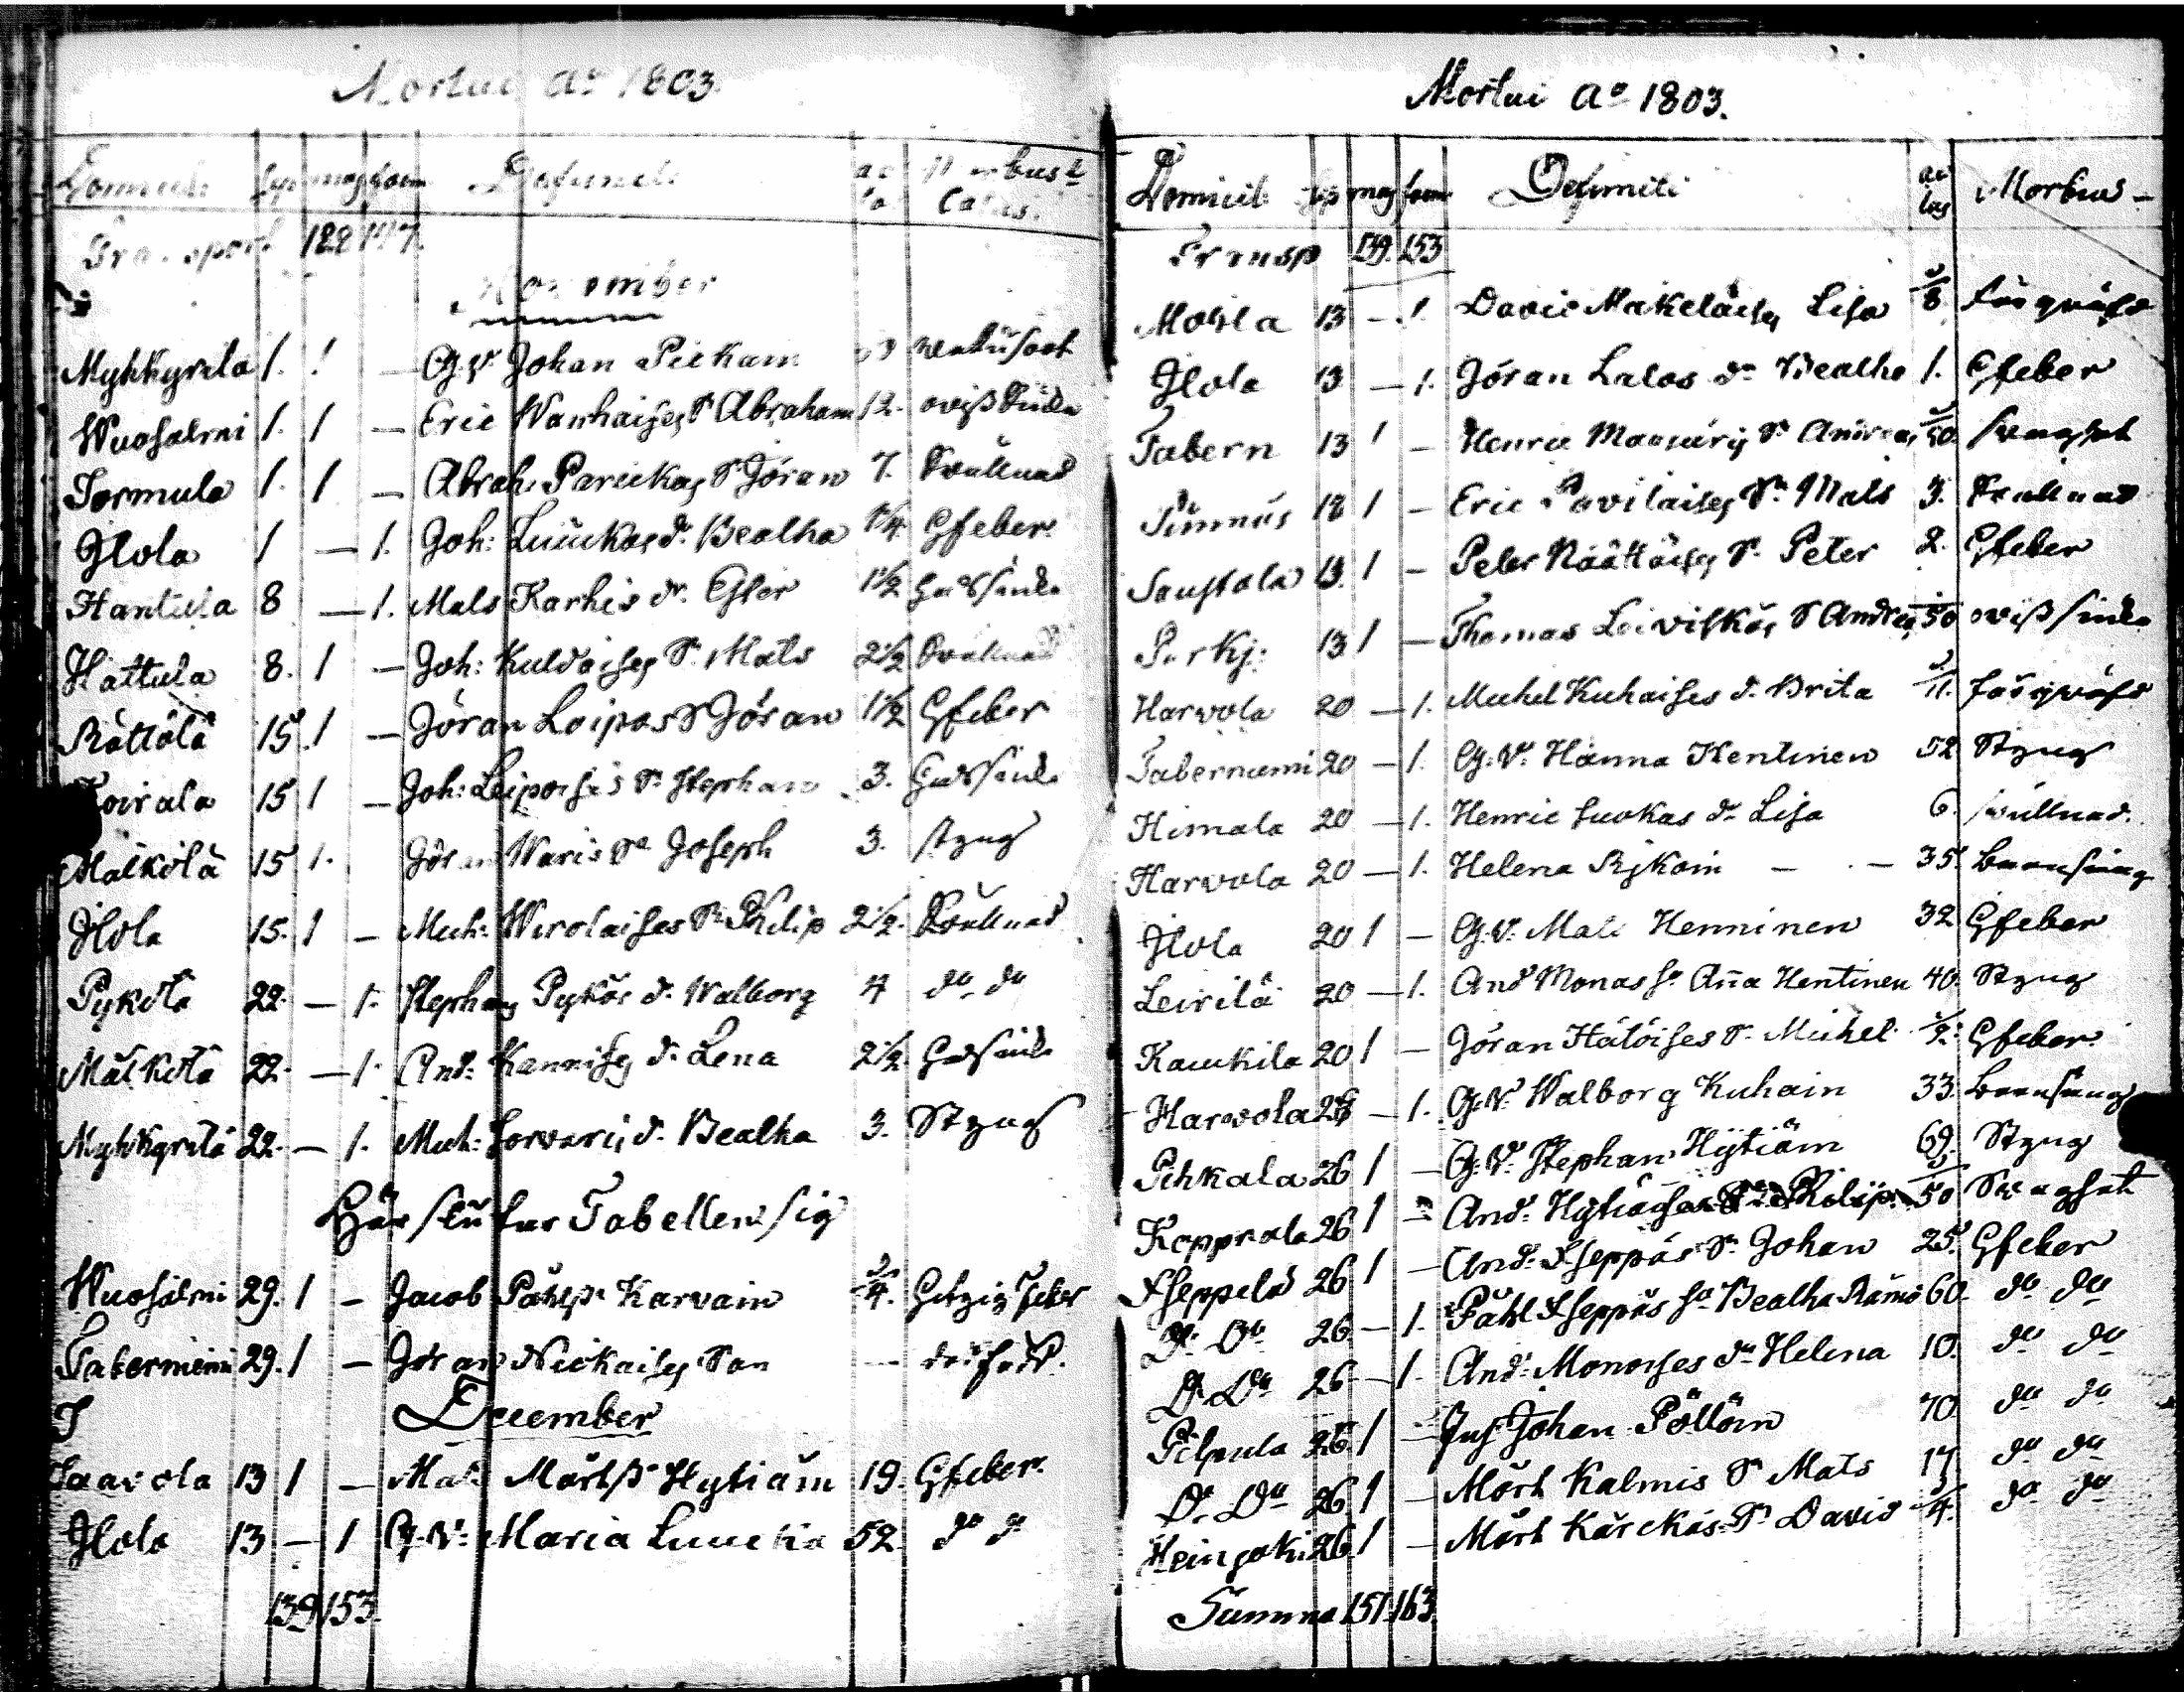 Mortui aº 1803.
Domicil: sep mas foem Defuncti aetas Morbus &
Casus.
Transport 122 147.
November
Mykkyrilä 1. 1 — G. V. Johan Pickain
Wuosalmi 1. 1 — Eric Wanhaises S. Abraham 12. oviss
Sormula 1. 1 — Abrah: Parickas S. Jöran 7. Svullnad
Ilola 1 — 1. Joh: Luuckas dr. Beatha 1/4. Gfeber
Hantula 8 — 1. Mats Karhis dr. Ester 1 1/2
Hattula 8. 1 — Joh: Kuldaises S. Mats 2 1/2 Svullnad
Rättölä 15. 1 — Jöran Loipas S Jöran 1 1/2 Gfeber
Koirala 15 1 — Joh: Leipoises S. Stephan 3.
Mälkölä 15 1. Jöran Waris Sn Joseph 3. styng
Ilola 15. 1 — Mich: Wirolaises S. Philip 2 1/2. Svullnad
Pykölä 22. — 1. Stephans Pykös d. Walborg 4 do do
Mälkölä 22. — 1. And: Kannises d. Lena 2 1/2.
Mykkyrilä 22. — 1. Mich: Sorvaris d. Beatha 3. Styng
Här slutar Tabellen sig
Wuosalmi 29. 1 — Jacob Påhlss. Karvain 4. Hetzig feber
Taberniemi 29. 1 — Jöran Nickaises Son — dödfödd.
December
Saarola 13 1 — Mats Mårtss. Hytiäin 19. Gfeber.
Ilola 13 — 1 G. V. Maria Luucka 52. do do
139 153.
Mortui aº 1803.
Domicil: sep mas foem Defuncti aetas Morbus —
Transp 139. 153
Mohla 13 — 1. David Makeläises Lisa 8
Ilola 13 — 1. Jöran Lalas dr Beatha 1. Gfeber
Tabern 13 1 — Henric S. Andreas 50.
Pinnus 13 1 — Eric Pavilaises Sn. Mats 3. Svullnad
Soustola 13. 1 — Peter Näättäises S. Peter 2. Gfeber
Perkj: 13 1 — Thomas Leiviskäs S Andreas 50 oviss
Harvola 20 — 1. Michel Kuhaises d. Brita 11.
Taberniemi 20 — 1. G. V. Hanna Hentinen 52 Styng
Himala 20 — 1. Henric Suokas dr Lisa 6. svullnad.
Harvola 20 — 1. Helena Rykäin — — 35. Barnsäng
Ilola 20 1 — G. V. Mats Henninen 32 Gfeber
Leirilä 20 — 1. And Monas h. Aña Hentinen 40. Styng
Kaukila 20 1 — Jöran Hätöises S. Michel 1/2. Gfeber
Harvola 26 — 1. G. V. Walborg Kuhain 33. Barnsäng
Pihkala 26 1 — G. V. Stephan Hytiäin 69. Styng
Kopprala 26 1 — And: Hytiäises S. Philip 50
Ihseppelä 26 1 — And: Ihseppäs Sn. Johan 25. Gfeber
Do Do 26. — 1. Påhl Ihseppäs ha Beatha Rämö 60. do do
Do Do 26 — 1. And: Monoises dr Helena 10. do do
Pilpula 26. 1 — Inh Johan Pöllöin 70 do do
Do Do 26 1 — Mårt Kalmis Sn Mats 17 do do
Heinjoki 26. 1 — Mårt Kärckäs Sn. David 4. do do
Summa 151. 163.